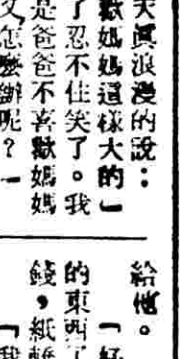 天眞浪漫的說：
獻媽媽這樣大的」
了忍不住笑了。我
是爸爸不喜獻媽媽
又怎麼辦呢？」
給他。
「好
的東西了
錢，紙
「我